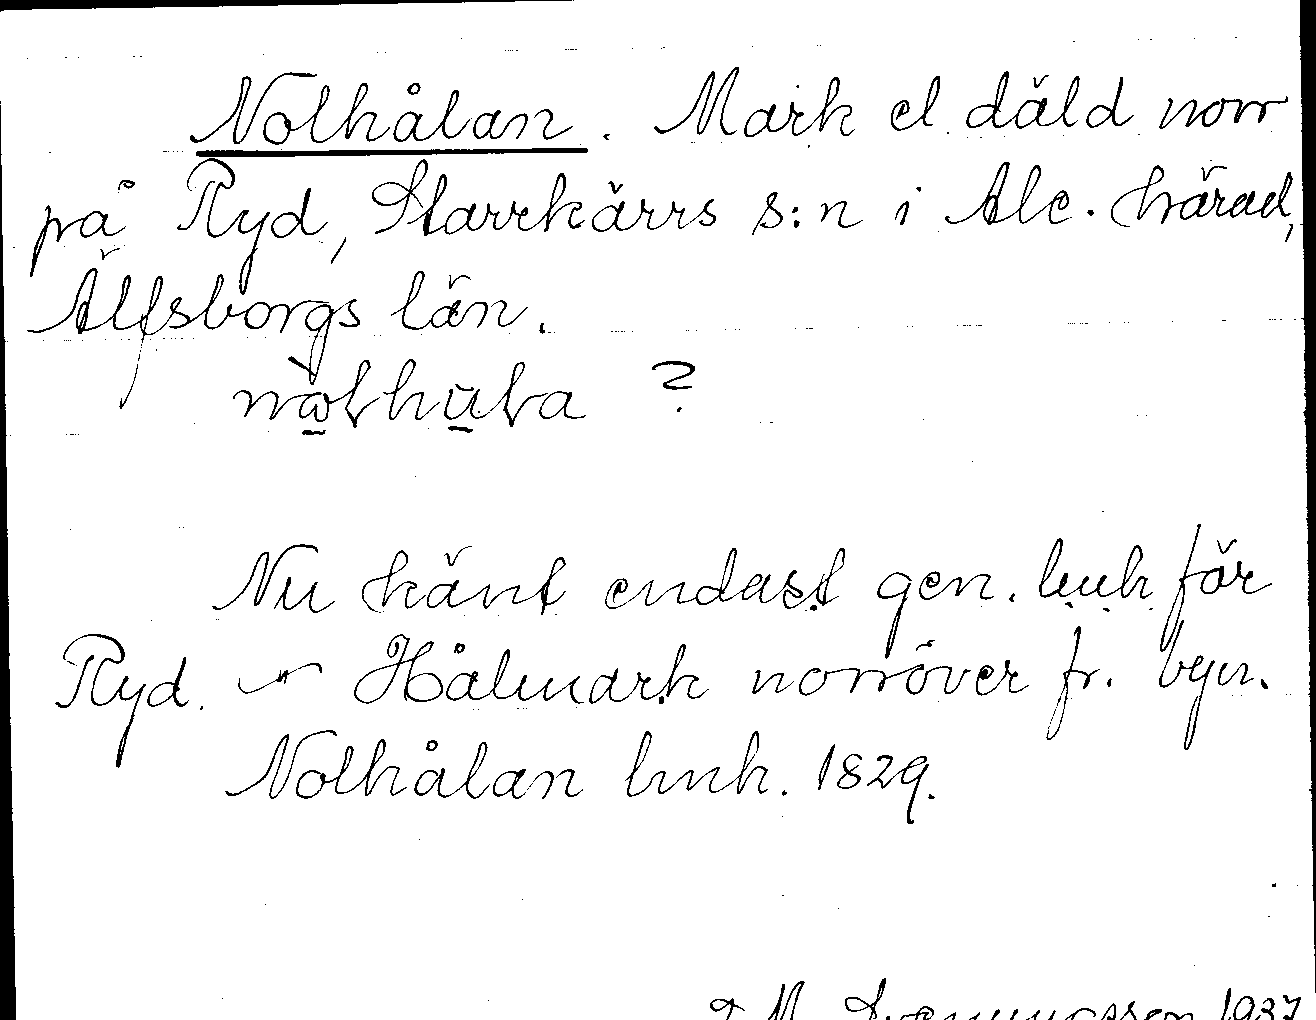 Nolhålan. Mark el däld norr
på Ryd, Starrkärrs s:n i Ale. härad,
Älfsborgs län.
?
Nu känt endast gen. lmk för
Ryd. Hålmark norröver fr. byn.
Nolhålan lmk. 1829.
1937